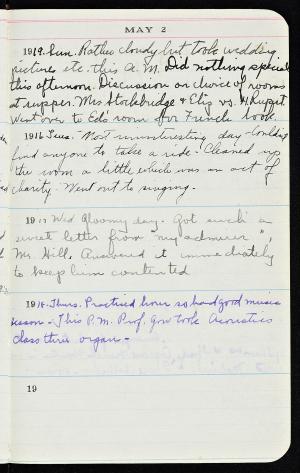 MAY 2
1919. Sun. Rather cloudy but took wedding
pictures etc. this A.M. Did nothing special
this afternoon. Discussion on choice of rooms
at supper. Mrs Stockbridge & vs.
Went over to Ed's room for French book.
1916 Tues. Most uninteresting day - Couldn't
find anyone to take a ride. Cleaned up
the room a little which was an act of
charity. Went out to singing.
19 Wed Gloomy day. Got such a
sweet letter from "my admirer",
Mr. Hill. Answered it immediately
to keep him contented
1918. Thurs. Practised hour so had good music
lesson - This P.M. Prof. Gow took Acoustics
class thru organ -
19